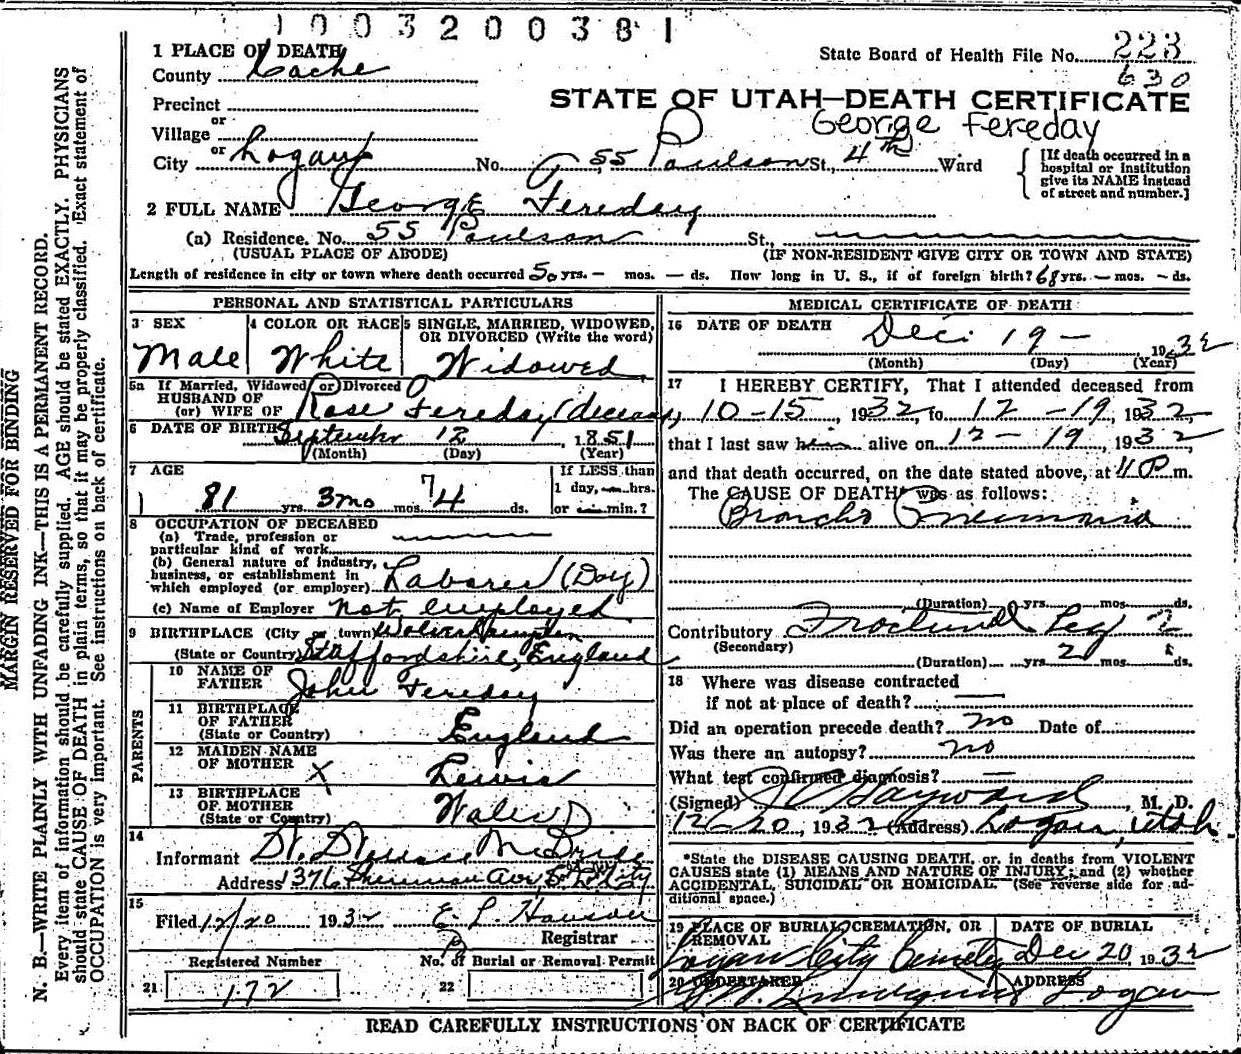 1003200381
1 PLACE OF DEATH
State Board of Health File No. 223
County Cache
630
Precinct
STATE OF UTAH—DEATH CERTIFICATE
or
George Fereday
Village
or
City Logan No. 55 Paulson St., 4th Ward
[If death occurred in a
hospital or institution
give its NAME instead
of street and number.]
2 FULL NAME George Fereday
(a) Residence. No. 55 Paulson St.,
(USUAL PLACE OF ABODE) (IF NON-RESIDENT GIVE CITY OR TOWN AND STATE)
Length of residence in city or town where death occurred 50 yrs. — mos. — ds. How long in U. S., if of foreign birth? 68 yrs. — mos. — ds.
PERSONAL AND STATISTICAL PARTICULARS
3 SEX
Male
4 COLOR OR RACE
White
5 SINGLE, MARRIED, WIDOWED,
OR DIVORCED (Write the word)
Widowed
5a If Married, Widowed or Divorced
HUSBAND OF
(or) WIFE OF Rose Fereday (deceased)
6 DATE OF BIRTH September 12, 1851
(Month) (Day) (Year)
7 AGE
81 yrs. 3 mo mos. 7 ds.
If LESS than
1 day, — hrs.
or — min.?
8 OCCUPATION OF DECEASED
(a) Trade, profession or
particular kind of work
(b) General nature of industry,
business, or establishment in
which employed (or employer) Laborer (Day)
(c) Name of Employer Not employed
9 BIRTHPLACE (City or town) Wolverhampton
(State or Country) Staffordshire, England
PARENTS
10 NAME OF
FATHER John Fereday
11 BIRTHPLACE
OF FATHER
(State or Country) England
12 MAIDEN NAME
OF MOTHER X Lewis
13 BIRTHPLACE
OF MOTHER
(State or Country) Wales
14
Informant McBride
Address 1376 Sherman Ave, S. L. City
15
Filed 12/20 1932 E. L. Hanson
Registrar
Registered Number No. of Burial or Removal Permit
21 172 22
MEDICAL CERTIFICATE OF DEATH
16 DATE OF DEATH Dec. 19 — 1932
(Month) (Day) (Year)
17 I HEREBY CERTIFY, That I attended deceased from
10-15, 1932 to 12-19, 1932
that I last saw him alive on 12-19, 1932
and that death occurred, on the date stated above, at 11 P m.
The CAUSE OF DEATH* was as follows:
Broncho Pneumonia
(Duration) yrs. mos. ds.
Contributory Fractured Leg
(Secondary)
(Duration) yrs. 2 mos. ds.
18 Where was disease contracted
if not at place of death? —
Did an operation precede death? no Date of
Was there an autopsy? no
What test confirmed diagnosis? —
(Signed) Hayward, M. D.
12-20, 1932 (Address) Logan, Utah.
*State the DISEASE CAUSING DEATH, or, in deaths from VIOLENT
CAUSES state (1) MEANS AND NATURE OF INJURY; and (2) whether
ACCIDENTAL, SUICIDAL OR HOMICIDAL. (See reverse side for ad-
ditional space.)
19 PLACE OF BURIAL, CREMATION, OR
REMOVAL
Logan City Cemetery
DATE OF BURIAL
Dec 20, 1932
20 UNDERTAKER
ADDRESS
Logan
READ CAREFULLY INSTRUCTIONS ON BACK OF CERTIFICATE
MARGIN RESERVED FOR BINDING
N. B.—WRITE PLAINLY WITH UNFADING INK—THIS IS A PERMANENT RECORD.
Every item of information should be carefully supplied. AGE should be stated EXACTLY. PHYSICIANS
should state CAUSE OF DEATH in plain terms, so that it may be properly classified. Exact statement of
OCCUPATION is very important. See instructions on back of certificate.